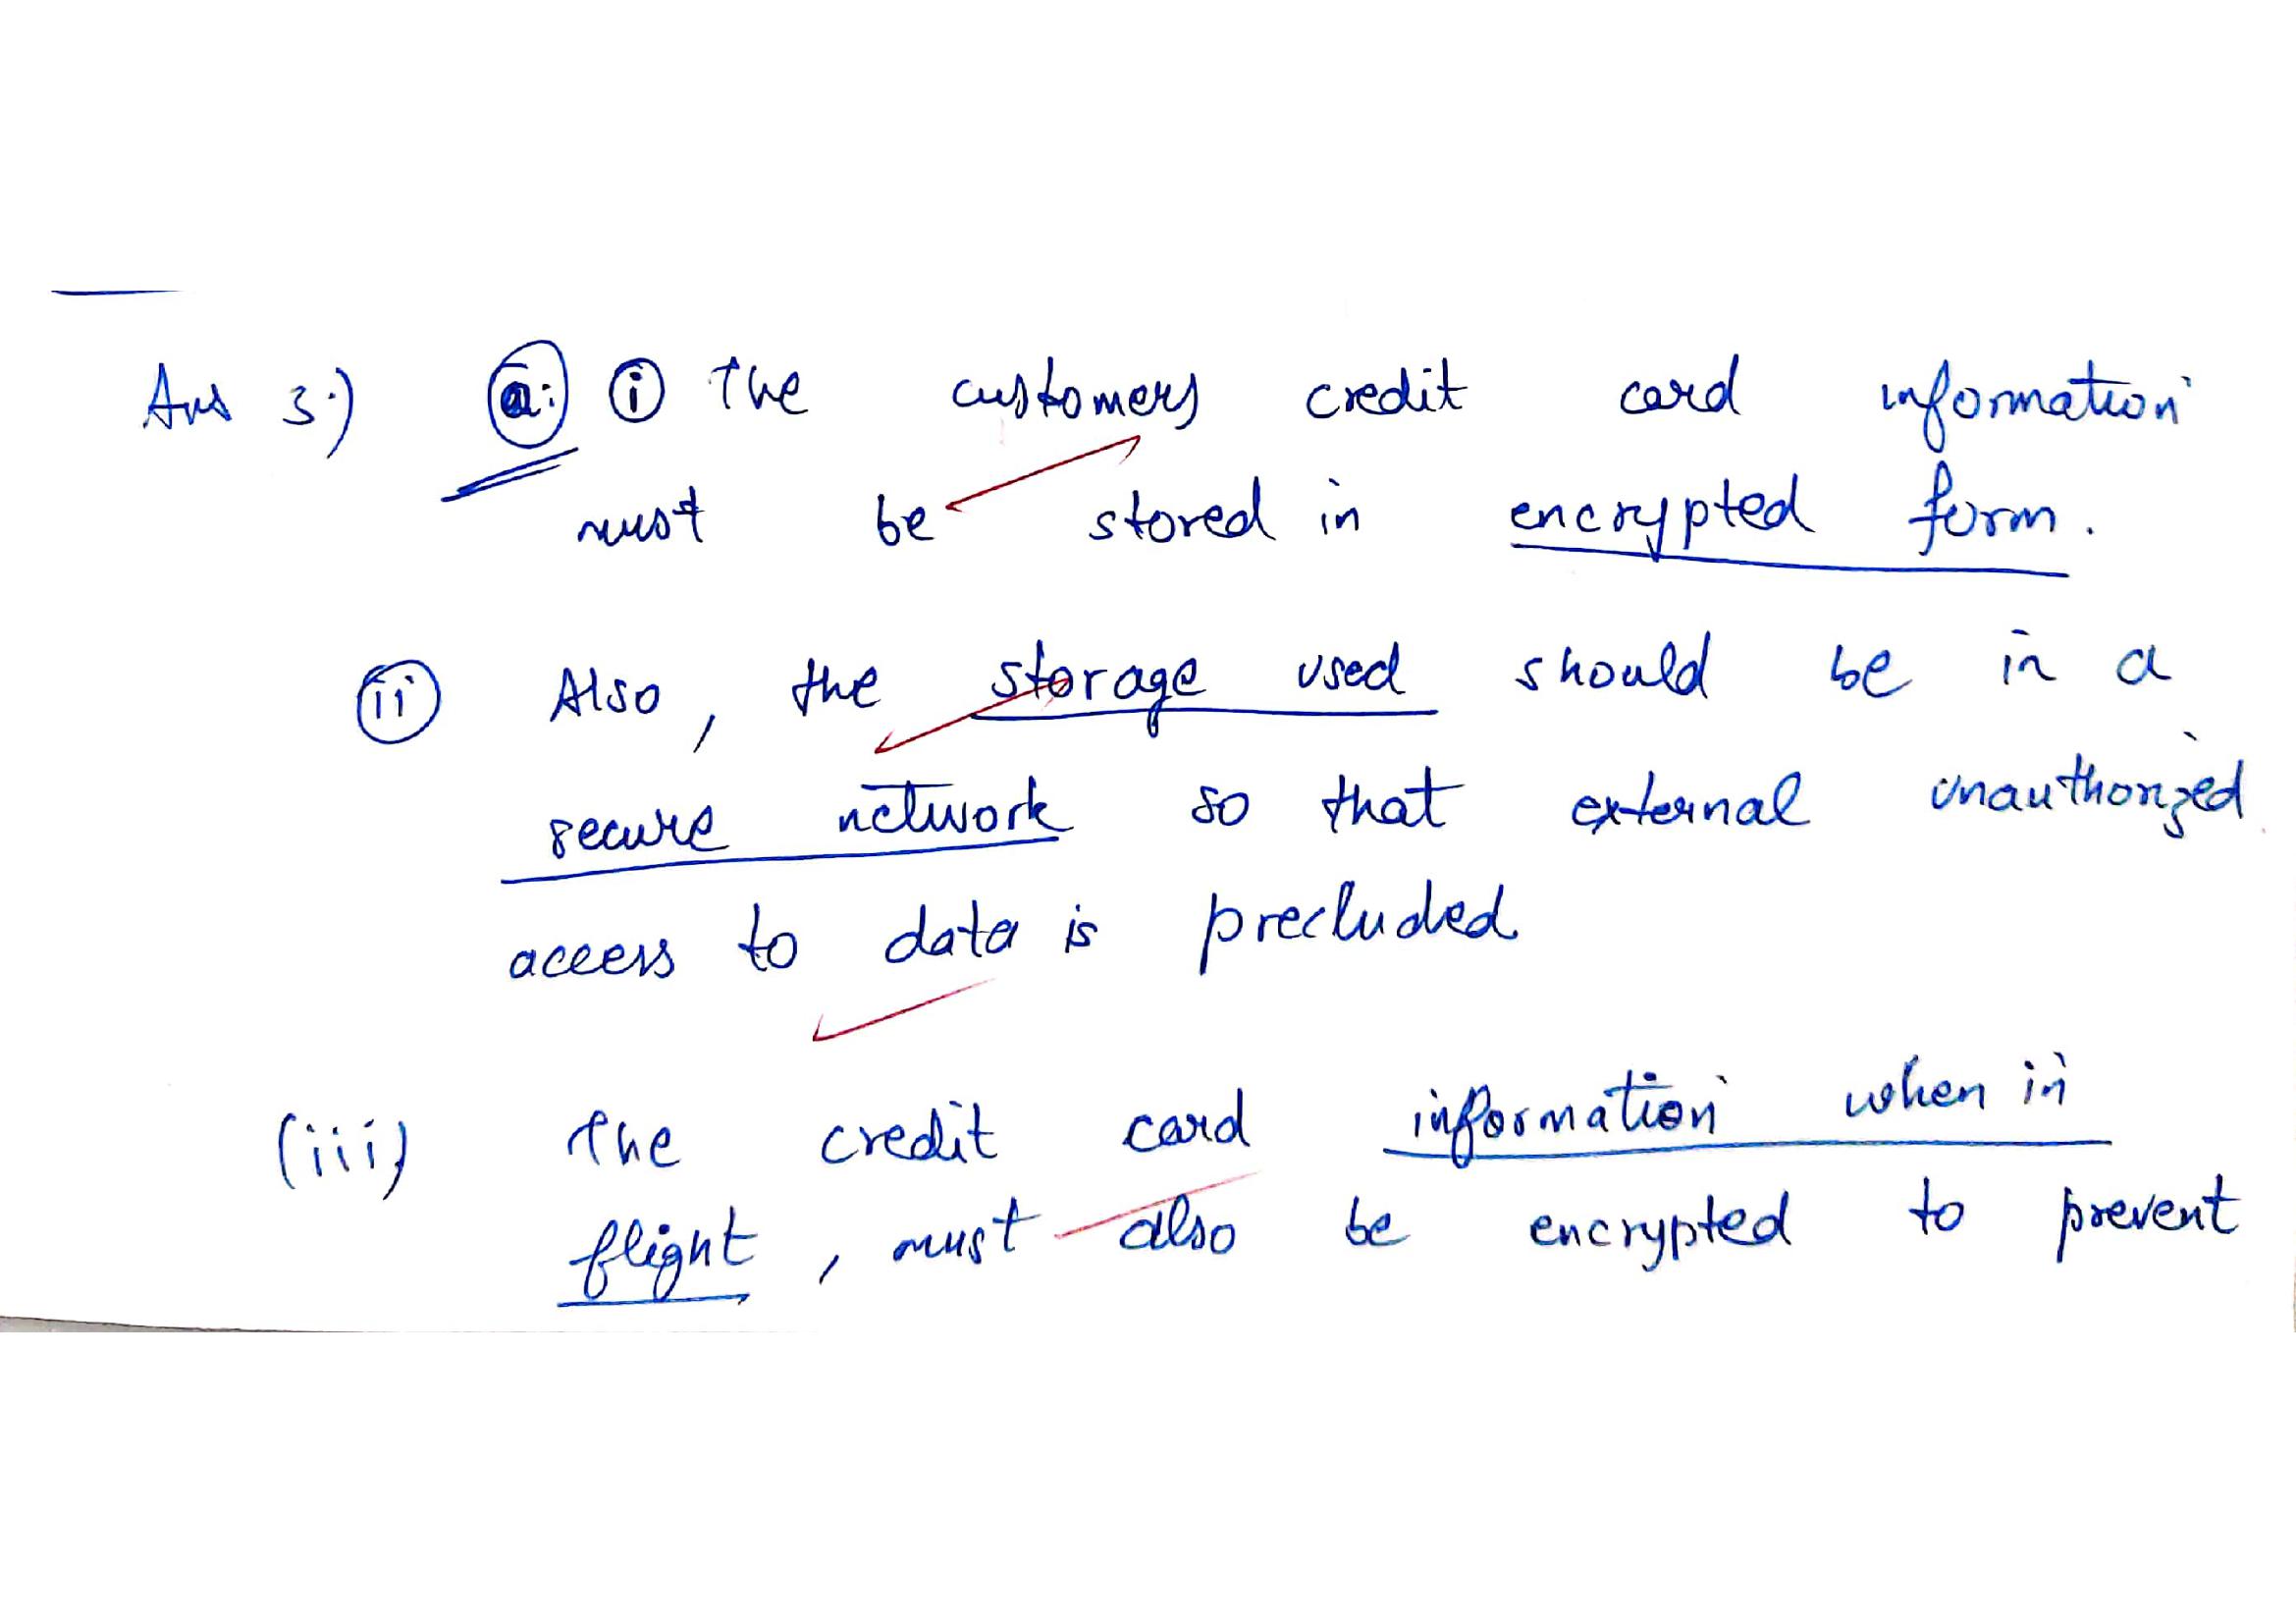 Ans 3:) a: i The customers credit card information
must be stored in encrypted form.
ii Also, the storage used should be in a
secure network so that external unauthorized
access to data is precluded
(iii) The credit card information when in
flight, must also be encrypted to prevent